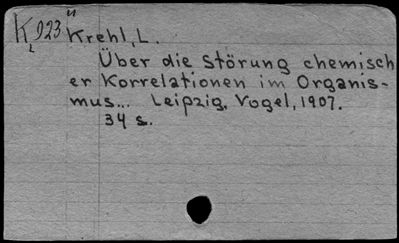 K 923
Krehl, L.
Über die Störung chemisch
er Korrelationen im Organis-
mus... Leipzig, Vogel, 1907.
34 s.